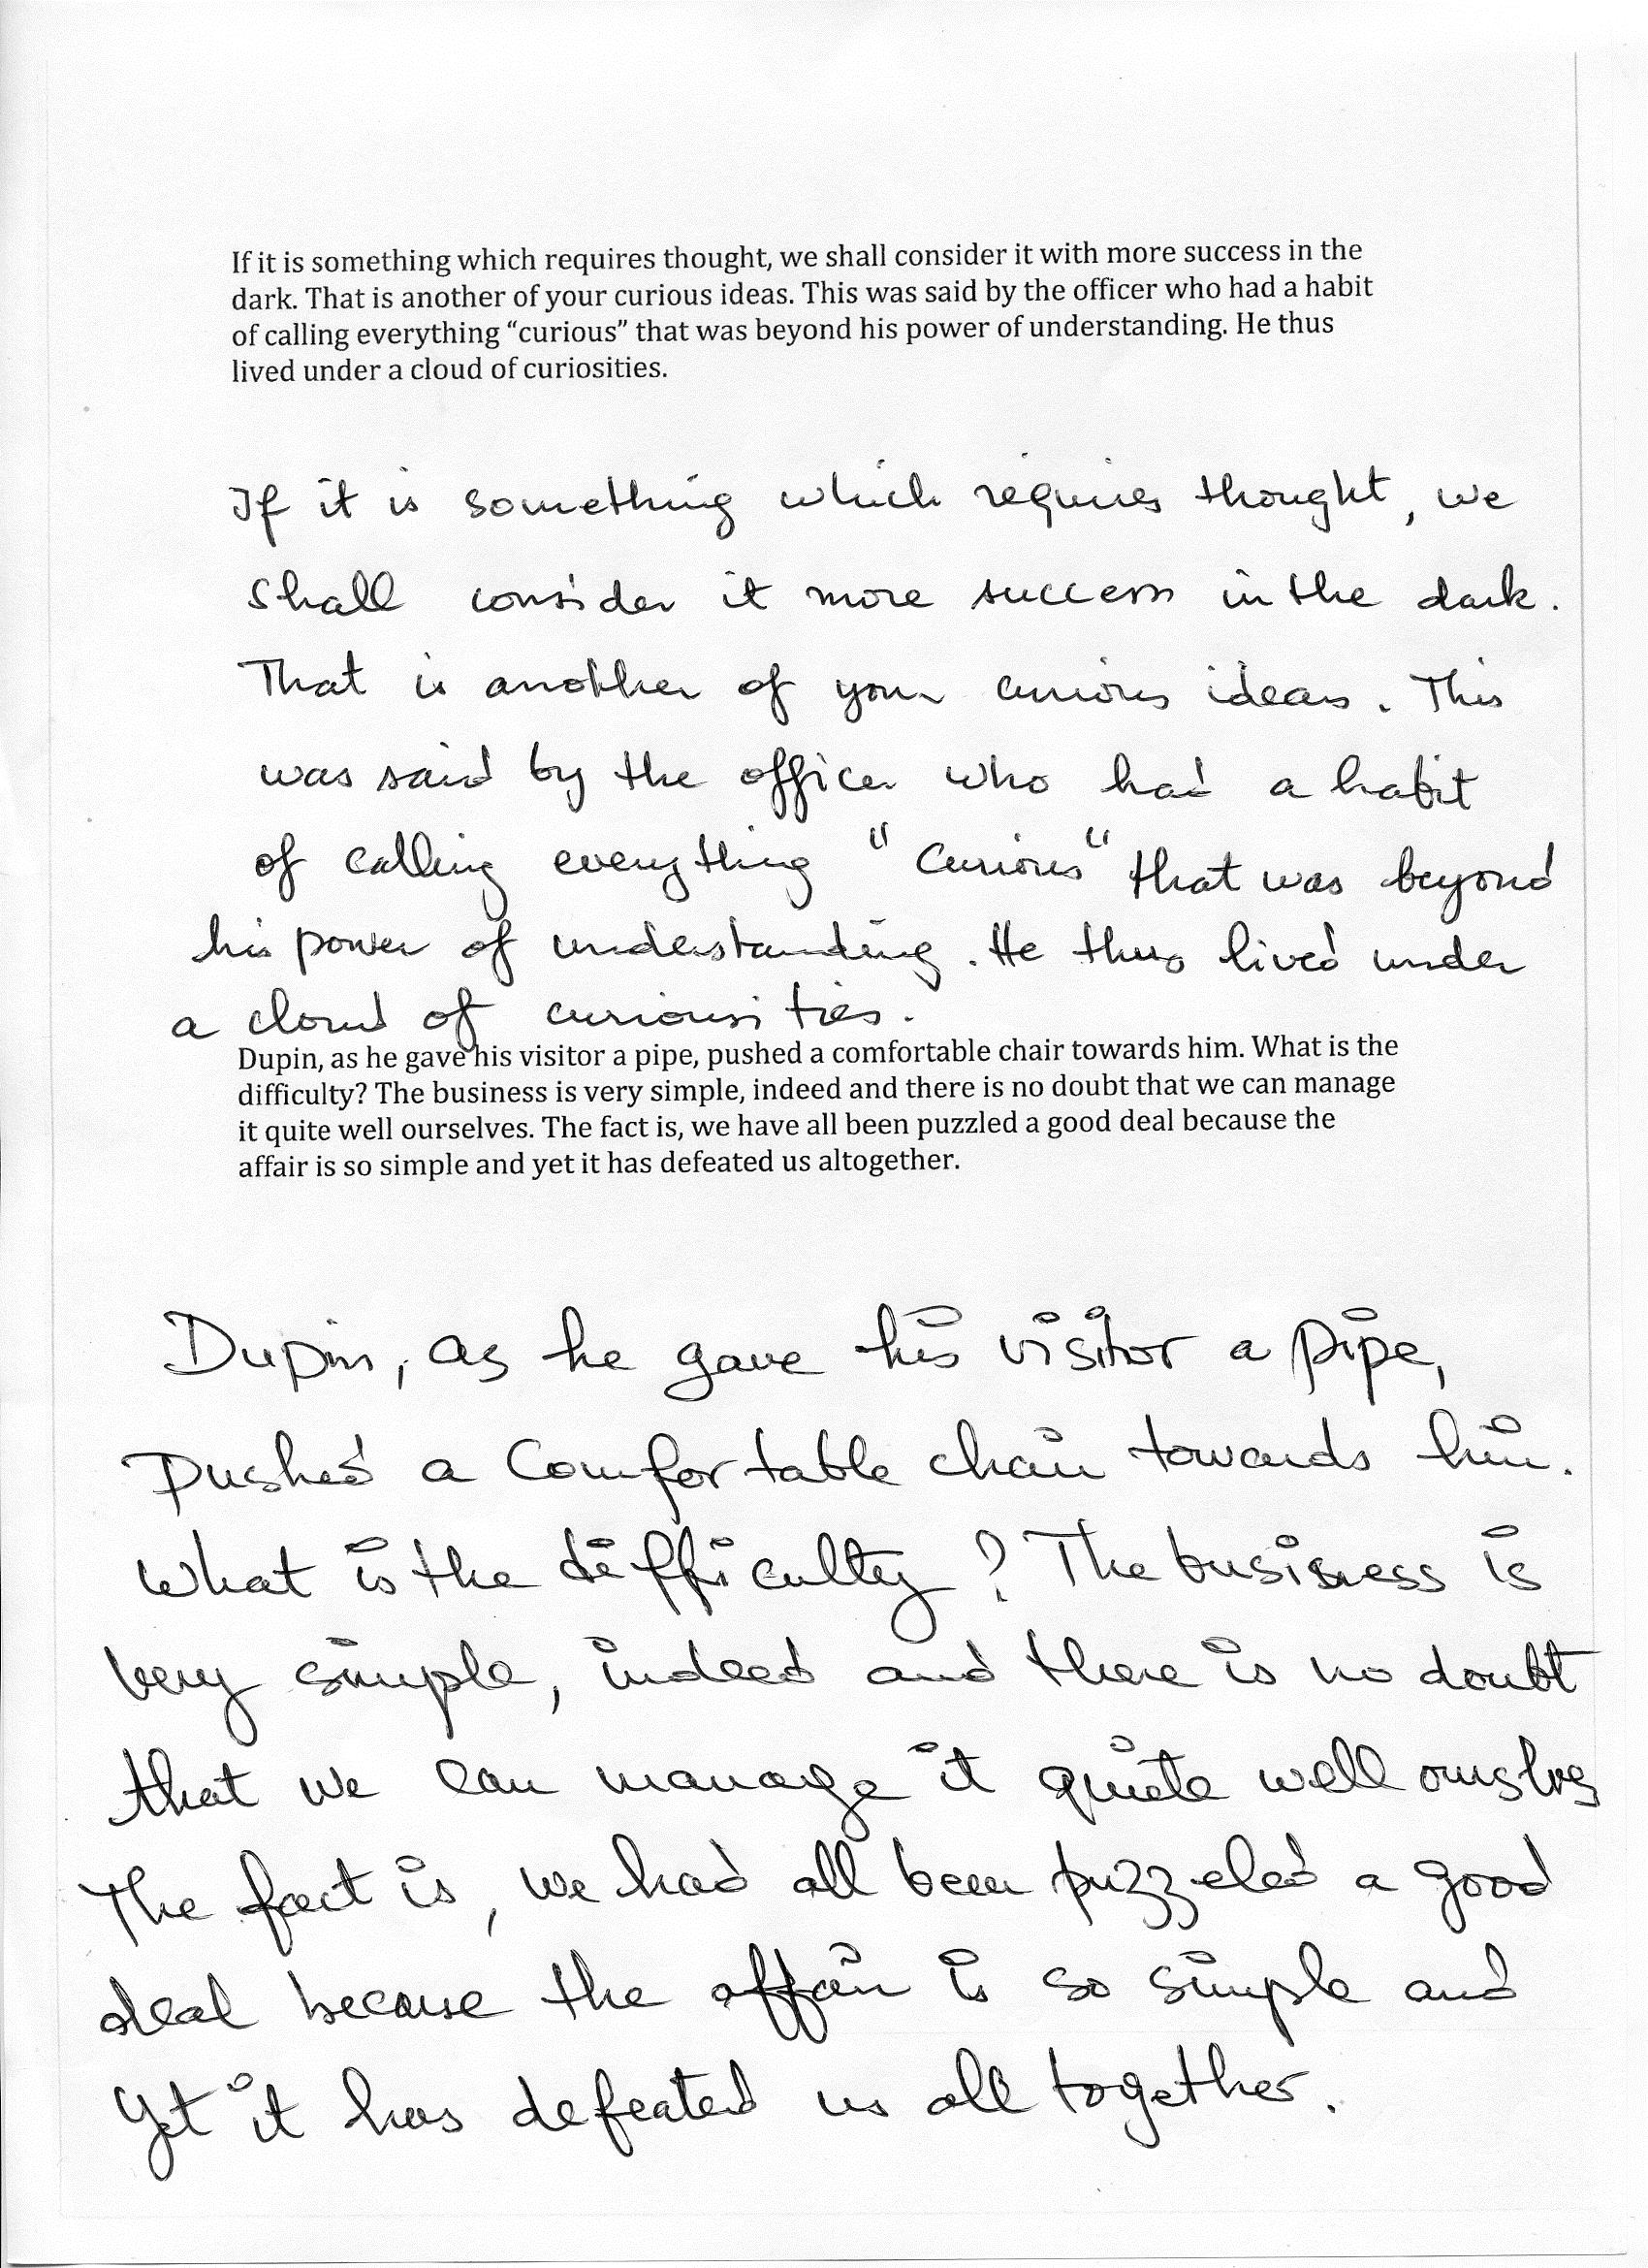 If it is something which requires thought, we shall consider it with more success in the
dark. That is another of your curious ideas. This was said by the officer who had a habit
of calling everything “curious” that was beyond his power of understanding. He thus
lived under a cloud of curiosities.
If it is something which requires thought, we
shall consider it more success in the dark.
That is another of your curious ideas. This
was said by the officer who had a habit
of calling everything "curious" that was beyond
his power of understanding. He thus lived under
a cloud of curiousities.
Dupin, as he gave his visitor a pipe, pushed a comfortable chair towards him. What is the
difficulty? The business is very simple, indeed and there is no doubt that we can manage
it quite well ourselves. The fact is, we have all been puzzled a good deal because the
affair is so simple and yet it has defeated us altogether.
Dupin, as he gave his visitor a pipe,
Pushed a Comfortable chair towards him.
What is the difficulty? The business is
very simple, indeed and there is no doubt
that we can manage it quiete well ourslves
The fact is, we had all been puzzeled a good
deal because the affair is so simple and
Yet it has defeated us all together.